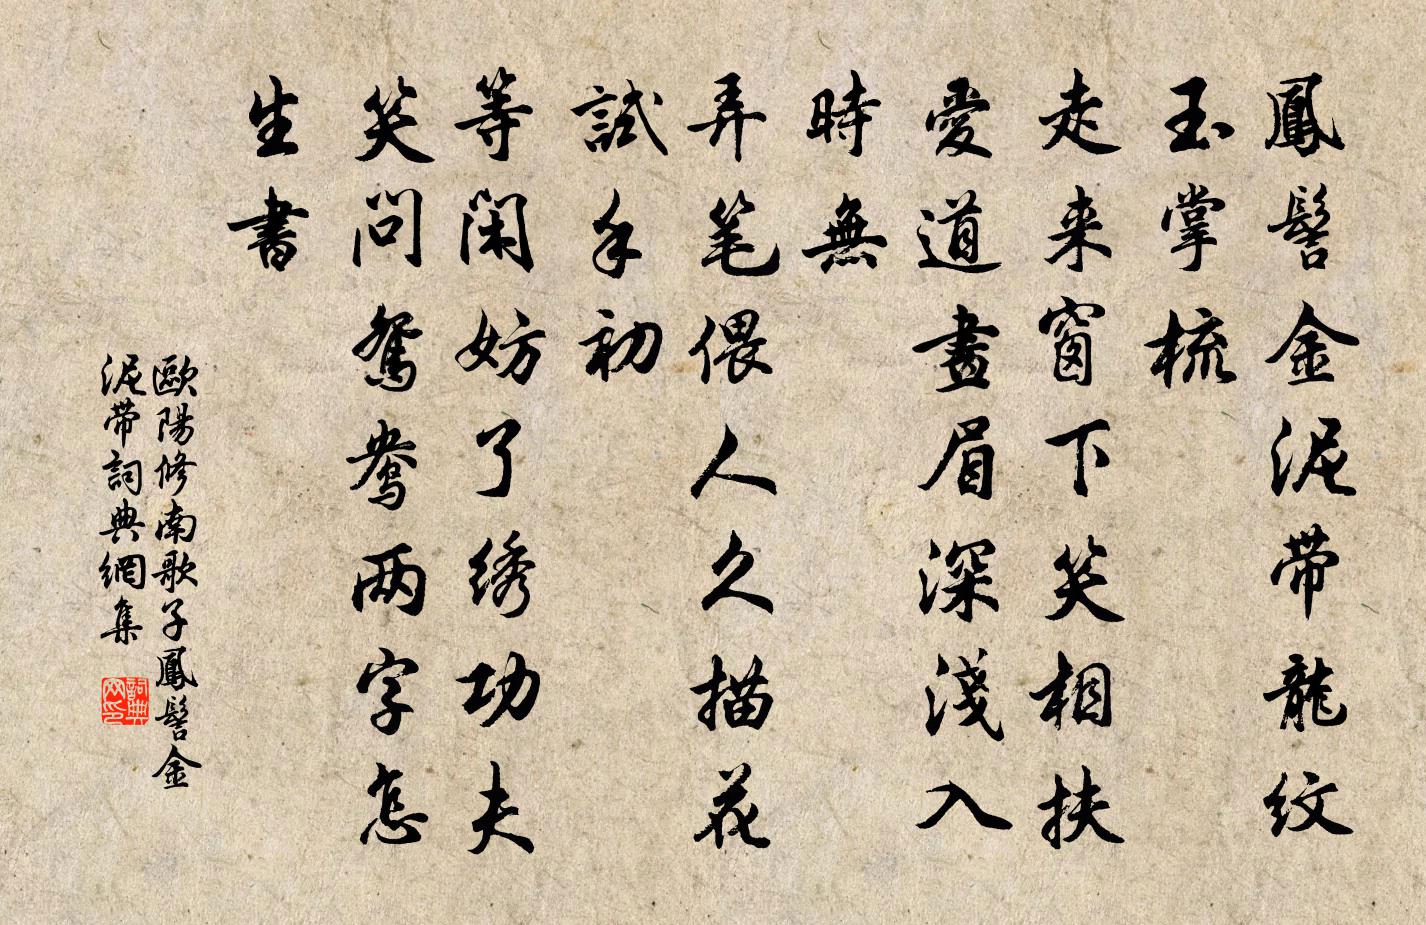 鳳髻金泥带龍紋
玉掌梳
走来窗下笑相扶
愛道畫眉深淺入
時無
弄笔偎人久描花
試手初
等閑妨了绣功夫
笑問鴛鸯两字怎
生書
歐陽修南歌子鳳髻金
泥带詞典網集
詞典网印